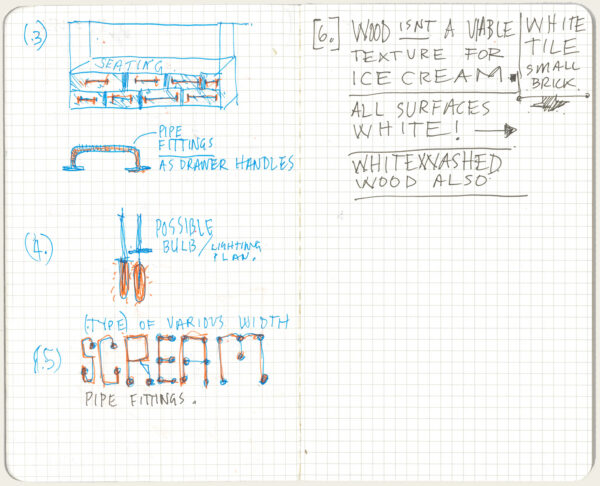 (.3)
SEATING
PIPE
FITTINGS
AS DRAWER HANDLES
(4.)
POSSIBLE
BULB/LIGHTING
PLAN.
(TYPE) OF VARIOUS WIDTH
(.5)
SCREAM
PIPE FITTINGS.
[6.] WOOD ISNT A VIABLE
TEXTURE FOR
ICE CREAM.
WHITE
TILE
SMALL
BRICK.
ALL SURFACES
WHITE!
WHITEWASHED
WOOD ALSO